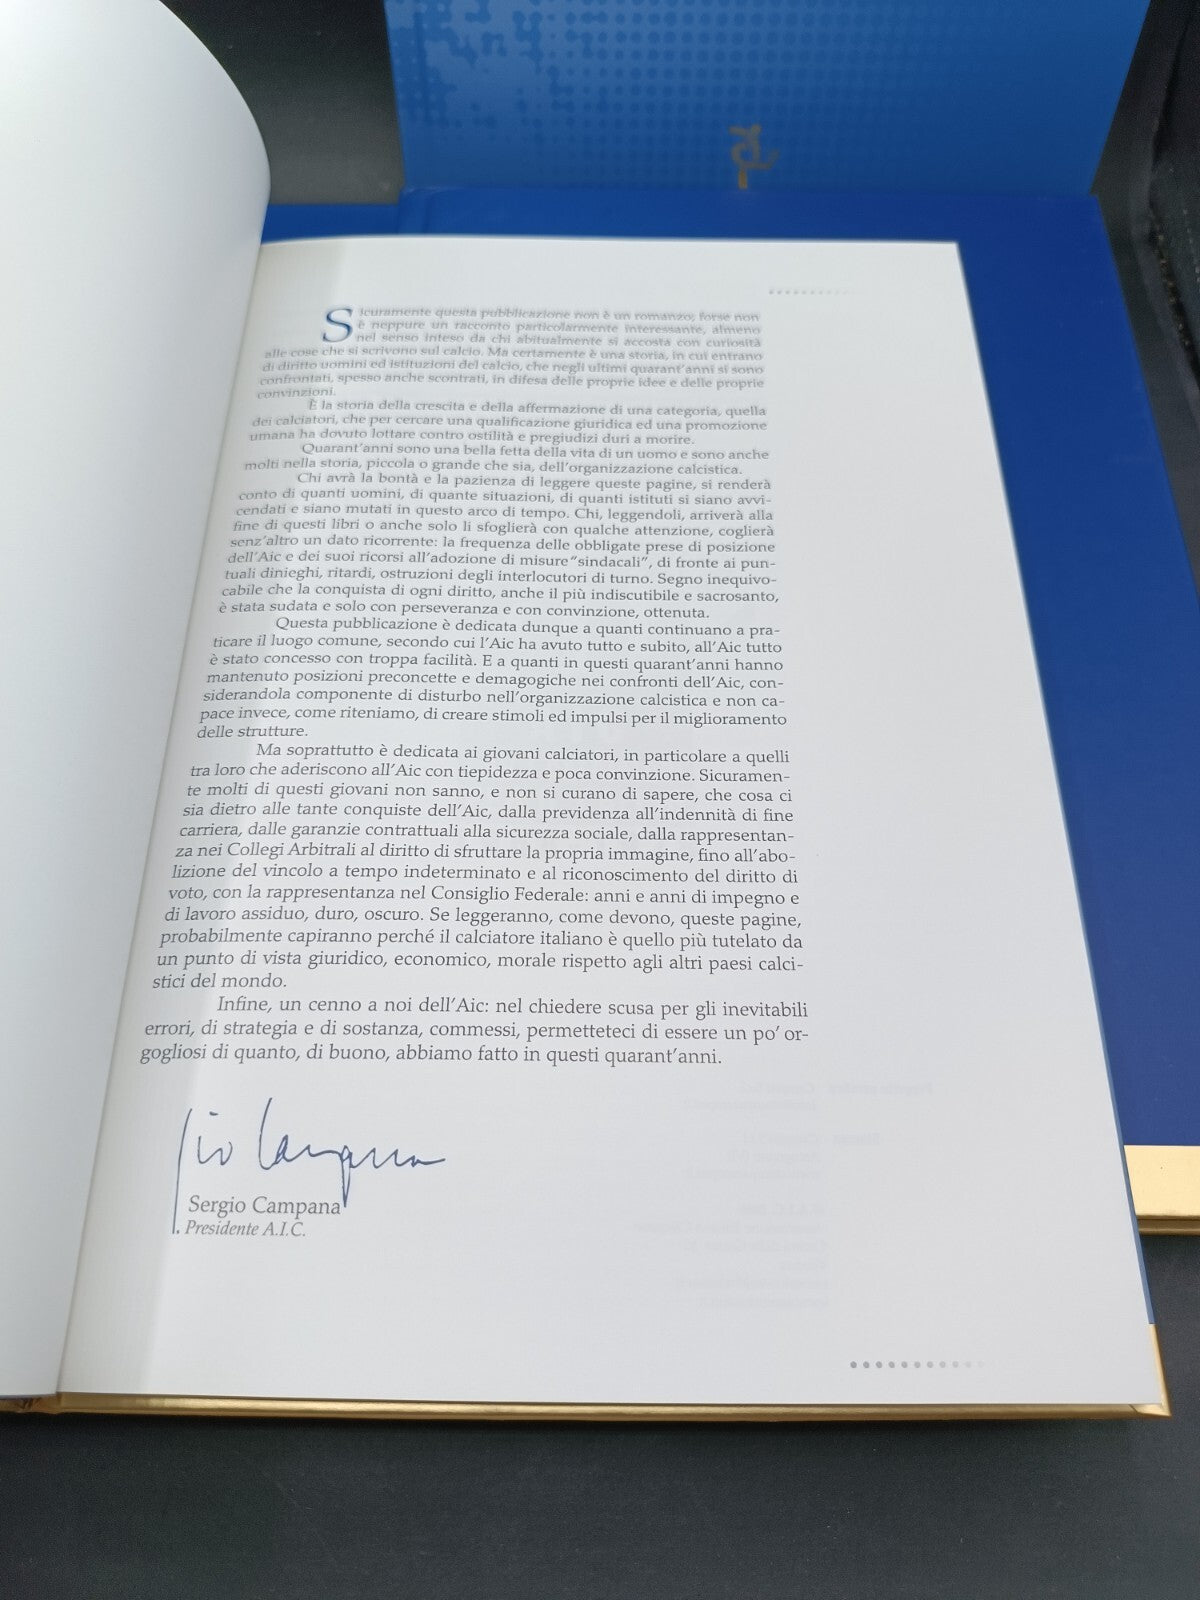 Sicuramente questa pubblicazione non è un romanzo; forse non
è neppure un racconto particolarmente interessante, almeno
nel senso inteso da chi abitualmente si accosta con curiosità
alle cose che si scrivono sul calcio. Ma certamente è una storia, in cui entrano
di diritto uomini ed istituzioni del calcio, che negli ultimi quarant'anni si sono
confrontati, spesso anche scontrati, in difesa delle proprie idee e delle proprie
convinzioni.
È la storia della crescita e della affermazione di una categoria, quella
dei calciatori, che per cercare una qualificazione giuridica ed una promozione
umana ha dovuto lottare contro ostilità e pregiudizi duri a morire.
Quarant'anni sono una bella fetta della vita di un uomo e sono anche
molti nella storia, piccola o grande che sia, dell'organizzazione calcistica.
Chi avrà la bontà e la pazienza di leggere queste pagine, si renderà
conto di quanti uomini, di quante situazioni, di quanti istituti si siano avvi-
cendati e siano mutati in questo arco di tempo. Chi, leggendoli, arriverà alla
fine di questi libri o anche solo li sfoglierà con qualche attenzione, coglierà
senz'altro un dato ricorrente: la frequenza delle obbligate prese di posizione
dell'Aic e dei suoi ricorsi all'adozione di misure "sindacali", di fronte ai pun-
tuali dinieghi, ritardi, ostruzioni degli interlocutori di turno. Segno inequivo-
cabile che la conquista di ogni diritto, anche il più indiscutibile e sacrosanto,
è stata sudata e solo con perseveranza e con convinzione, ottenuta.
Questa pubblicazione è dedicata dunque a quanti continuano a pra-
ticare il luogo comune, secondo cui l'Aic ha avuto tutto e subito, all'Aic tutto
è stato concesso con troppa facilità. E a quanti in questi quarant'anni hanno
mantenuto posizioni preconcette e demagogiche nei confronti dell'Aic, con-
siderandola componente di disturbo nell'organizzazione calcistica e non ca-
pace invece, come riteniamo, di creare stimoli ed impulsi per il miglioramento
delle strutture.
Ma soprattutto è dedicata ai giovani calciatori, in particolare a quelli
tra loro che aderiscono all'Aic con tiepidezza e poca convinzione. Sicuramen-
te molti di questi giovani non sanno, e non si curano di sapere, che cosa ci
sia dietro alle tante conquiste dell'Aic, dalla previdenza all'indennità di fine
carriera, dalle garanzie contrattuali alla sicurezza sociale, dalla rappresentan-
za nei Collegi Arbitrali al diritto di sfruttare la propria immagine, fino all'abo-
lizione del vincolo a tempo indeterminato e al riconoscimento del diritto di
voto, con la rappresentanza nel Consiglio Federale: anni e anni di impegno e
di lavoro assiduo, duro, oscuro. Se leggeranno, come devono, queste pagine,
probabilmente capiranno perché il calciatore italiano è quello più tutelato da
un punto di vista giuridico, economico, morale rispetto agli altri paesi calci-
stici del mondo.
Infine, un cenno a noi dell'Aic: nel chiedere scusa per gli inevitabili
errori, di strategia e di sostanza, commessi, permetteteci di essere un po' or-
gogliosi di quanto, di buono, abbiamo fatto in questi quarant'anni.
Sergio Campana
Presidente A.I.C.